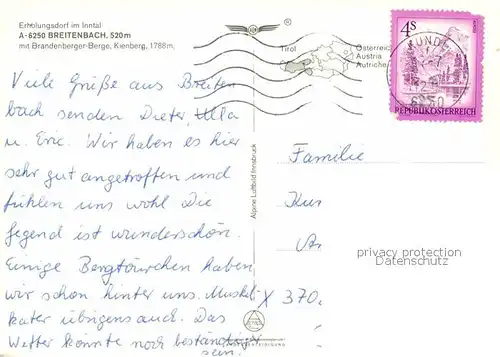 Erholungsdorf im Inntal
A-6250 BREITENBACH, 520m
mit Brandenberger-Berge, Kienberg, 1788m.
Viele Grüße aus Breiten
bach senden Dieter, Ulla
u. Eric. Wir haben es hier
sehr gut angetroffen und
fühlen uns wohl Die
Gegend ist wunderschön.
Einige Bergtourchen haben
wir schon hinter uns. Muskel
kater übrigens auch. Das
Wetter könnte noch beständiger
sein!
Alpine Luftbild Innsbruck
Tirol
Österreich
Austria
Autriche
4S
REPUBLIK ÖSTERREICH
KUND
6250
Familie
X 370.
privacy protection
Datenschutz